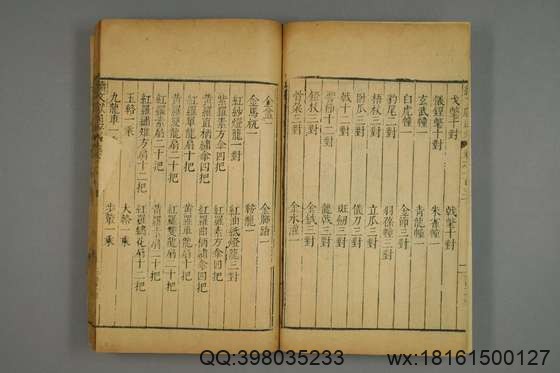 戈氅十對 戟氅十對
儀鍠氅十對 朱雀幢一
玄武幢一 青龍幢一
白虎幢一 金節三對
豹尾二對 羽葆幢三對
梧杖三對 立瓜三對
臥瓜三對 儀刀三對
戟十二對 班劍三對
十二對 龍戟三對
鐙杖三對 金鉞三對
骨朶三對 金水瓶一
金盆一 金腳踏一
金馬杌一 鞍籠一
紅紗燈籠一對 紅油紙燈籠三對
紫羅素方傘四把 紅羅素方傘四把
黃羅直柄繡傘四把 紅羅曲柄繡傘四把
紅羅單龍扇二十把 黃羅單龍扇十把
黃羅雙龍扇二十把 紅羅雙龍扇二十把
紅羅素扇二十把 黃羅素扇二十把
紅羅繡雉方扇十二把 紅羅繡花扇十二把
玉輅一乘 大輅一乘
九龍車一 步輦一乘
QQ:398035233 wx:18161500127